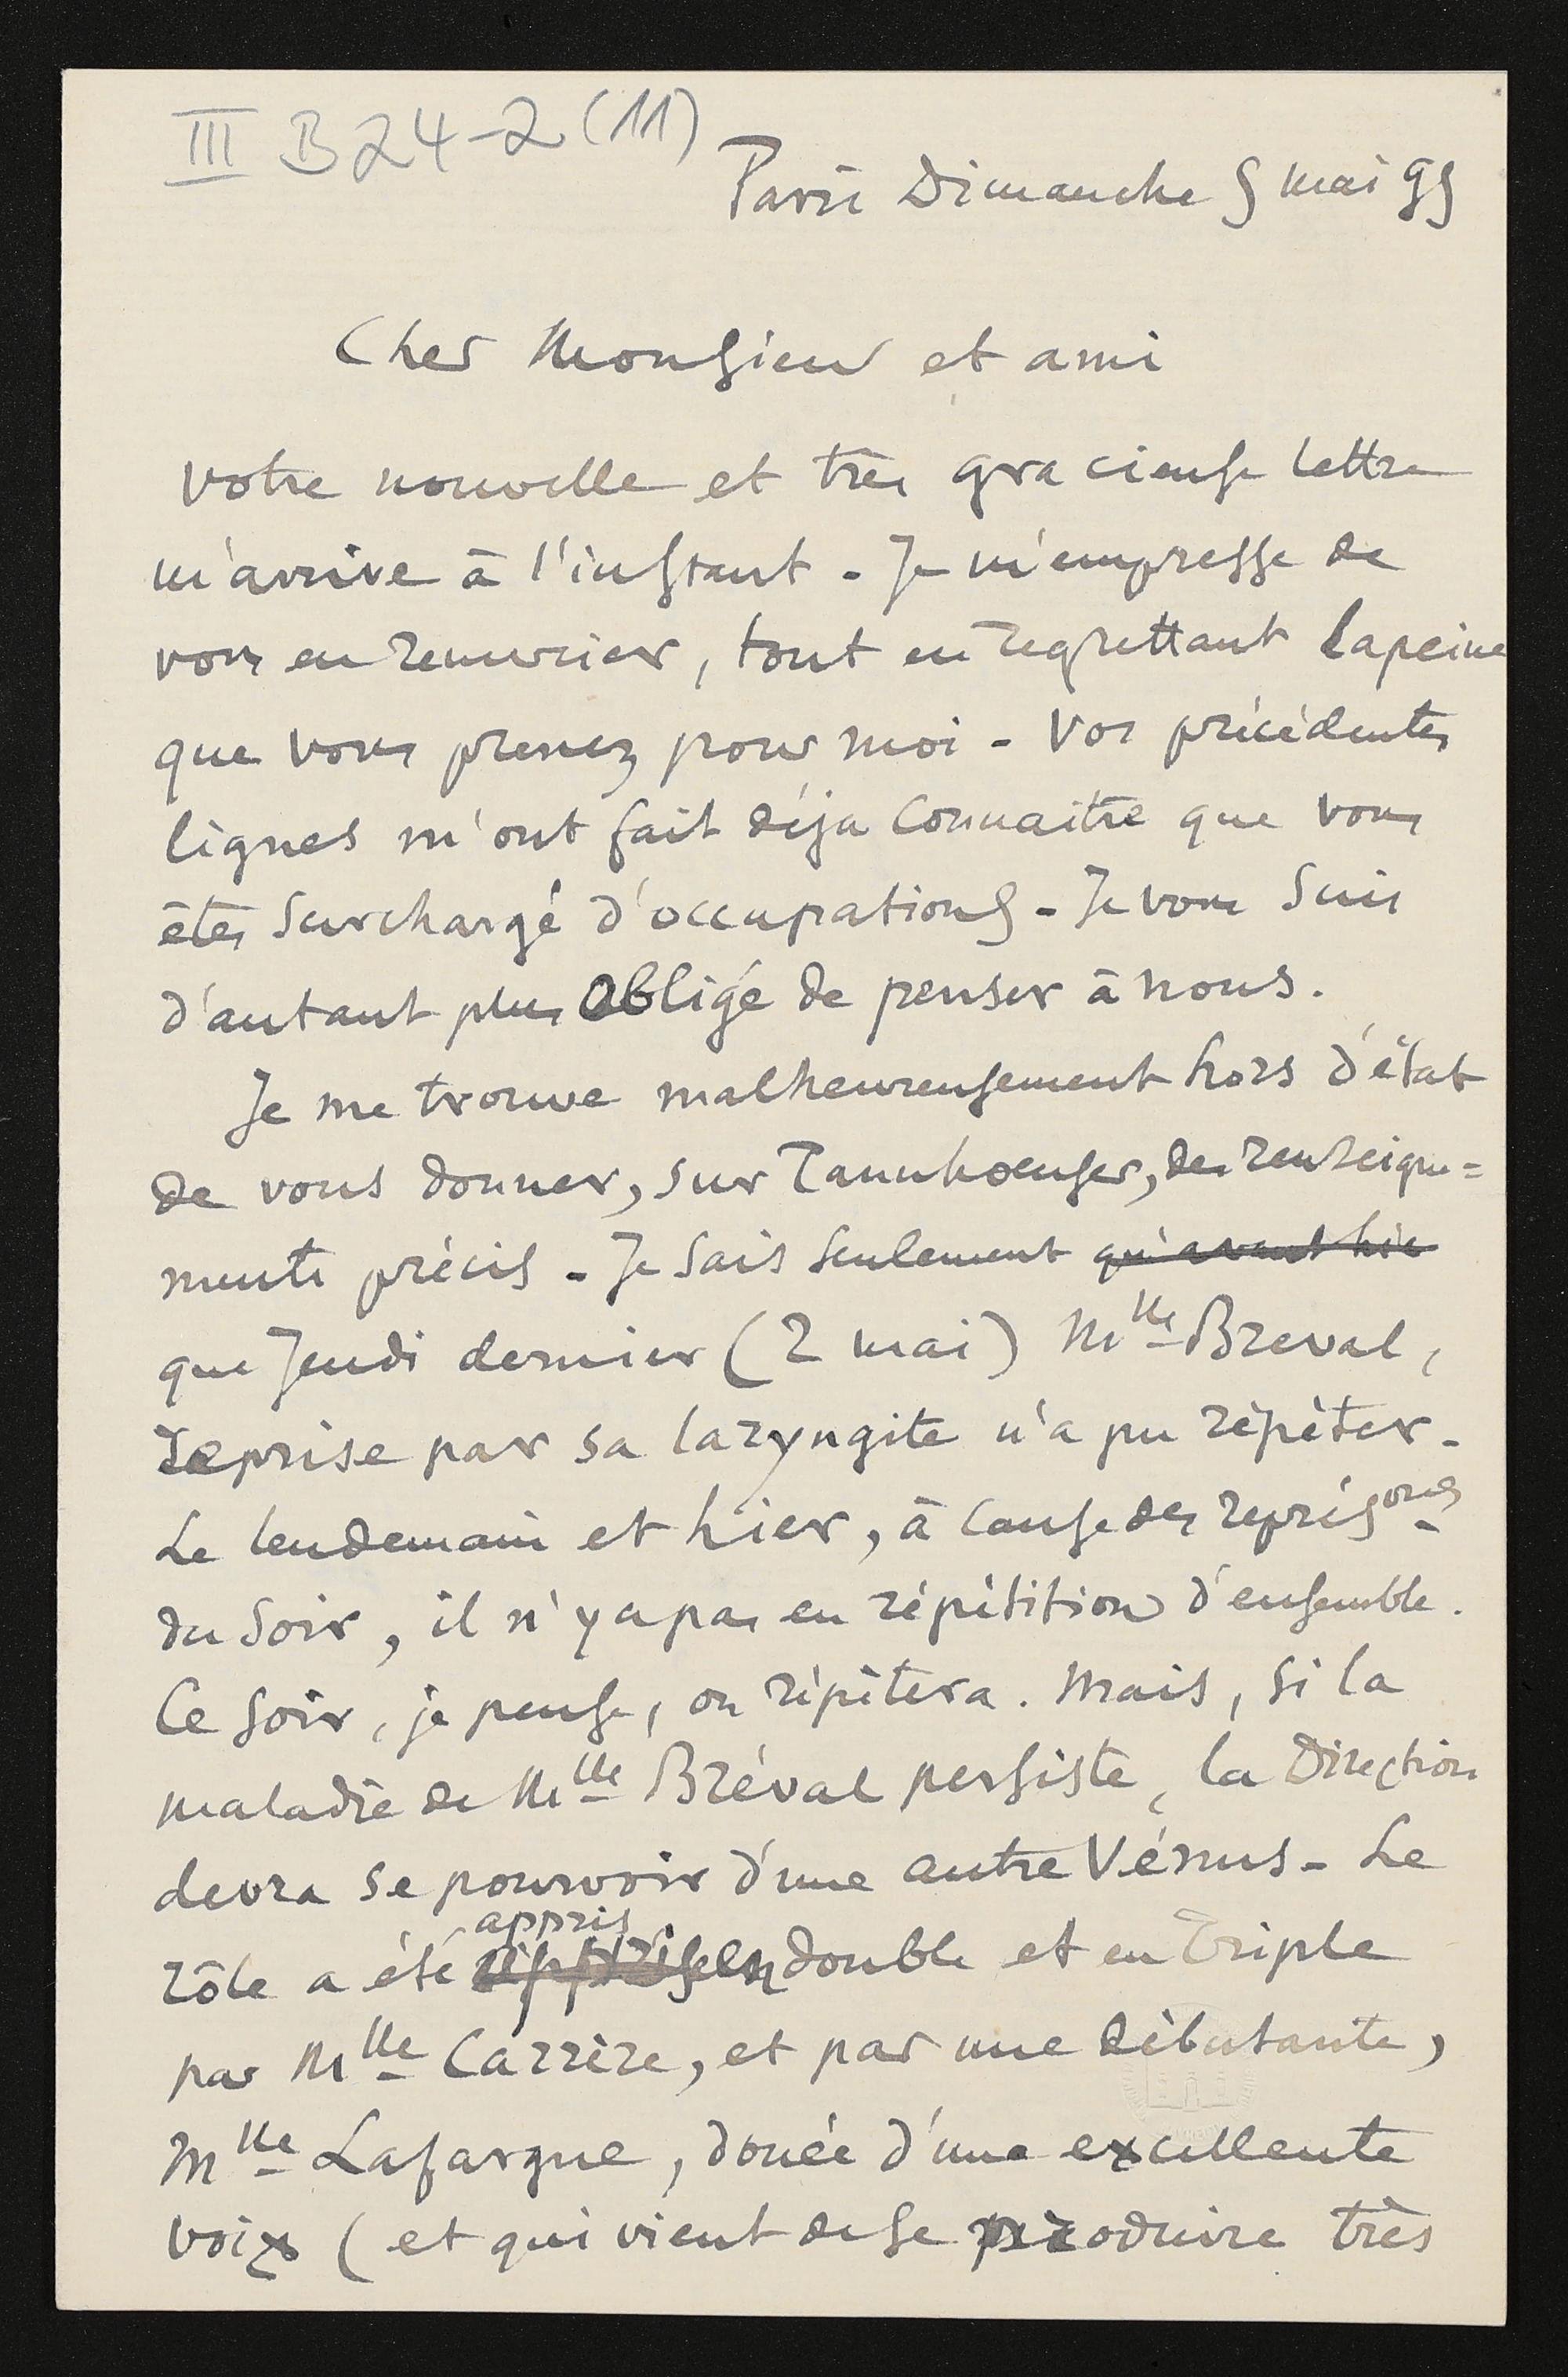 III B 24-2 (11)
Paris Dimanche 5 mai 95
Cher Monsieur et ami
Votre nouvelle et très gracieuse lettre
m'arrive à l'instant - Je m'empresse de
vous en remercier, tout en regrettant la peine
que vous prenez pour moi - Vos précédentes
lignes m'ont fait déja connaitre que vous
êtes surchargé d'occupations - Je vous suis
d'autant plus obligé de penser à nous.
Je me trouve malheureusement hors d'état
de vous donner, sur Tannhoeuser, des renseigne=
ments précis - Je sais seulement qu'avant hie
que Jeudi dernier (2 mai) Mlle Breval,
reprise par sa laryngite n'a pu répéter -
Le lendemain et hier, à cause des représons
du soir, il n'y a pas eu répétition d'ensemble.
Ce soir, je pense, on répètera. Mais, si la
maladie de Mlle Bréval persiste, la Direction
devra se pourvoir d'une autre Vénus - Le
appris
rôle a été en double et en triple
par Mlle Carrère, et par une débutante,
Mlle Lafargue, douée d'une excellente
voix (et qui vient de se produire très